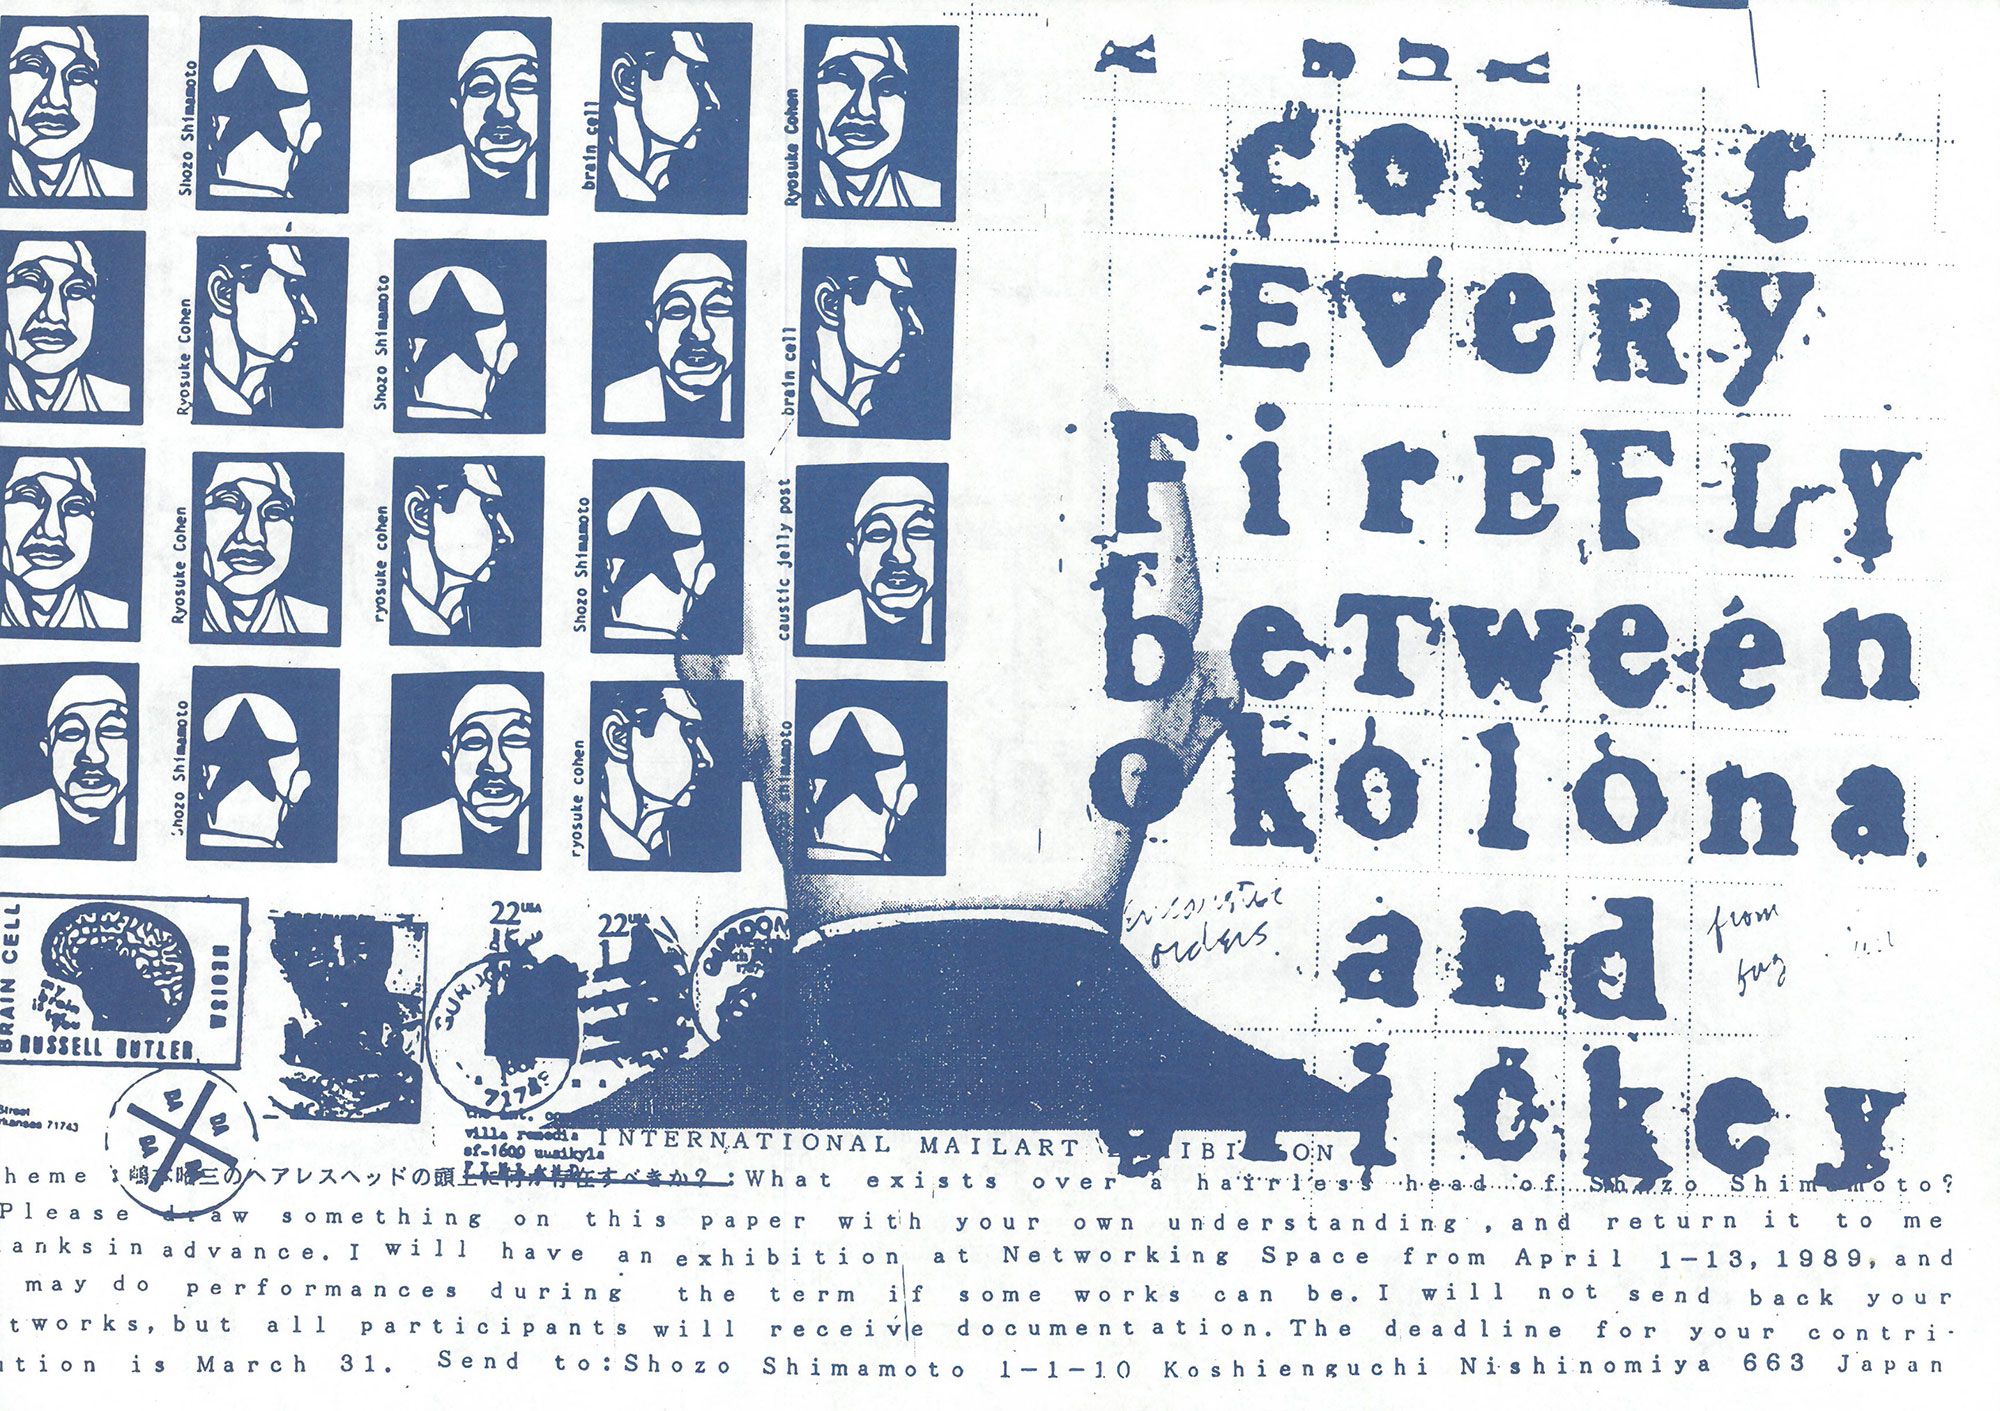 Shozo Shimamoto
brain cell
Ryosuke Cohen
Ryosuke Cohen
Shozo Shimamoto
brain cell
Ryosuke Cohen
ryosuke cohen
Shozo Shimamoto
caustic jelly post
Shozo Shimamoto
ryosuke cohen
count
EVeRy
FireFLy
beTweén
okolona
and
ickey
orders.
from
22 USA
22 USA
BRAIN CELL
my brain is for you
RUSSELL BUTLER
Street
71743
villa remedia
sf-1600 uusikyla
INTERNATIONAL MAILART
heme :嶋本昭三のヘアレスヘッドの頭上に何が存在すべきか? :What exists over a hairless head of Shozo Shimamoto?
Please draw something on this paper with your own understanding ,and return it to me
anks in advance. I will have an exhibition at Networking Space from April 1-13, 1989, and
may do performances during the term if some works can be. I will not send back your
tworks, but all participants will receive documentation. The deadline for your contri-
ution is March 31. Send to:Shozo Shimamoto 1-1-10 Koshienguchi Nishinomiya 663 Japan